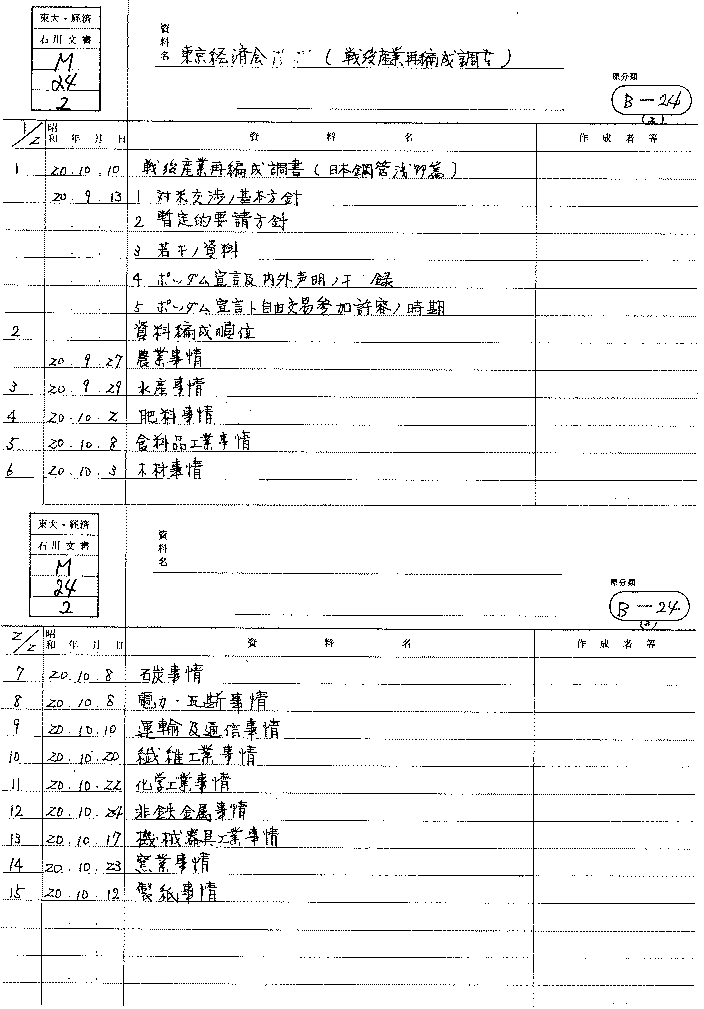 東大・経済
石川文書
M
24
2
資料名 東京経済会 (戦後産業再編成調査)
原分類
B-24
(2)
1/2 昭和 年 月 日 資料名 作成者等
1 20.10.10 戦後産業再編成調書(日本鋼管浅野篇)
20.9.13 1 対米交渉ノ基本方針
2 暫定的要請方針
3 若干ノ資料
4 ポツダム宣言及内外声明ノ 録
5 ポツダム宣言ト自由交易参加許容ノ時期
2 資料編成順位
20.9.27 農業事情
3 20.9.29 水産事情
4 20.10.2 肥料事情
5 20.10.8 食料品工業事情
6 20.10.3 木材事情
東大・経済
石川文書
M
24
2
資料名
原分類
B-24
(2)
2/2 昭和 年 月 日 資料名 作成者等
7 20.10.8 石炭事情
8 20.10.8 電力・瓦斯事情
9 20.10.10 運輸及通信事情
10 20.10.20 繊維工業事情
11 20.10.22 化学工業事情
12 20.10.24 非鉄金属事情
13 20.10.17 機械器具工業事情
14 20.10.23 窯業事情
15 20.10.12 製紙事情